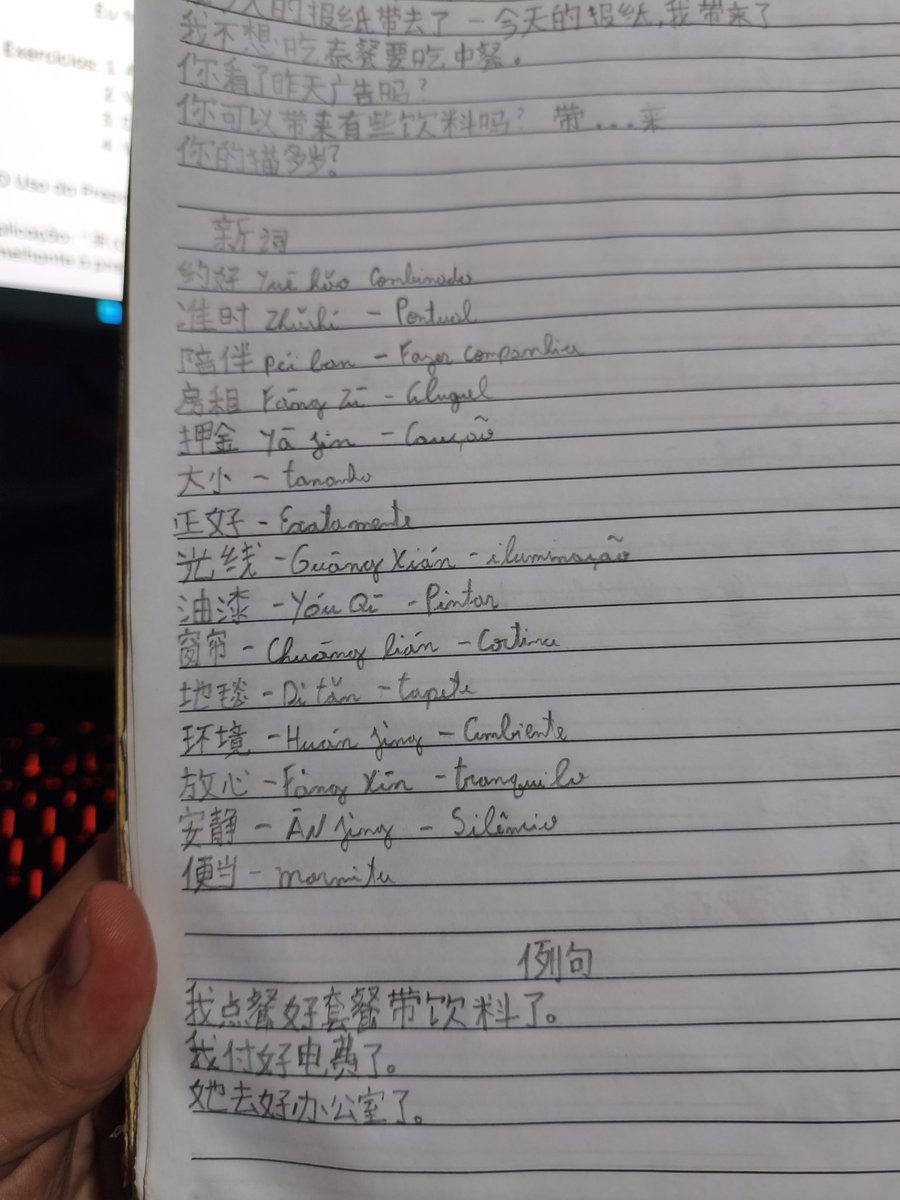 Eu
Exercícios: 1.
2.
3.
4.
O Uso do
今天的报纸带去了 - 今天的报纸,我带来了
我不想吃泰餐要吃中餐。
你看了昨天广告吗?
你可以带来有些饮料吗? 带...来
你的猫多岁?
新词
约好 Yuē hǎo Combinado
准时 Zhǔshí - Pontual
陪伴 péi ban - Fazer Companhia
房租 Fáng Zū - Aluguel
押金 Yā jin - Caução
大小 - tamanho
正好 - Exatamente
光线 - Guāng Xián - iluminação
油漆 - Yóu Qī - Pintar
窗帘 - Chuāng lián - Cortina
地毯 - Di tǎn - tapete
环境 - Huán jìng - Ambiente
放心 - Fàng Xīn - tranquilo
安静 - ĀN jìng - Silêncio
便当 - marmita
例句
我点餐好套餐带饮料了。
我付好电费了。
她去好办公室了。